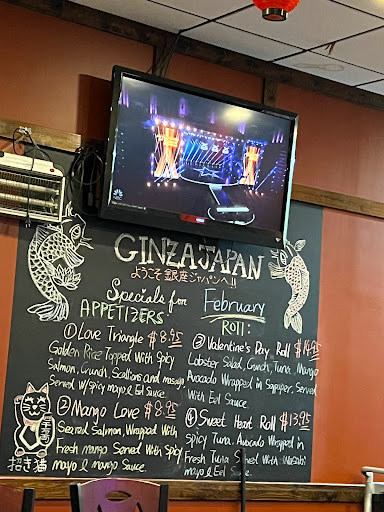 GINZA JAPAN
ようこそ 銀座ジャパンへ!!
Specials for February
APPETIZERS
ROLL:
① Love Triangle $8.95
Golden Rice Topped With Spicy
Salmon, Crunch, Scallions and masago,
Served w/Spicy mayo & Eel Sauce
② Mango Love $8.95
Seared Salmon, Wrapped With
Fresh mango Served With Spicy
mayo & mango Sauce.
③ Valentine's Day Roll $16.95
Lobster Salad, Crunch, Tuna, Mango
Avocado Wrapped in Soypaper, Served
With Eel Sauce.
④ Sweet Heart Roll $13.95
Spicy Tuna. Avocado Wrapped in
Fresh Tuna Served With Wasabi
mayo & Eel Sauce.
招き猫